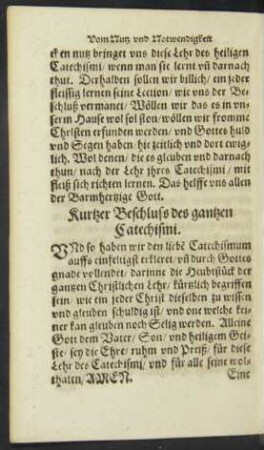 Vom Nutz vnd Notwendigkeit
cken nutz bringet vns diese Lehr des heiligen
Catechismi / wenn man sie lernt vñ darnach
thut. Derhalben sollen wir billich / ein jeder
fleissig lernen seine Lection / wie vns der Be-
schluß vermanet / Wöllen wir das es in vn-
serm Hause wol sol ston / wöllen wir fromme
Christen erfunden werden / vnd Gottes huld
vnd Segen haben / hie zeitlich vnd dort ewig-
lich. Wol denen / die es gleuben vnd darnach
thun / nach der Lehr jhres Catechismi / mit
fleiß sich richten lernen. Das helffe vns allen
der Barmhertzige Gott.
Kurtzer Beschluss des gantzen
Catechismi.
VNd so haben wir den liebē Catechismum
auffs einfeltigst erkleret / vñ durch Gottes
gnade vollendet / darinne die Heubtstück der
gantzen Christlichen Lehr / kürtzlich begriffen
sein / wie ein jeder Christ dieselben zu wissen
vnd gleuben schuldig ist / vnd one welche kei-
ner kan gleuben noch Selig werden. Alleine
Gott dem Vater / Son / vnd heiligem Gei-
ste / sey die Ehre / ruhm vnd Preiß / für diese
Lehr des Catechismi / vnd für alle seine wol-
thaten / AMEN.
Eine